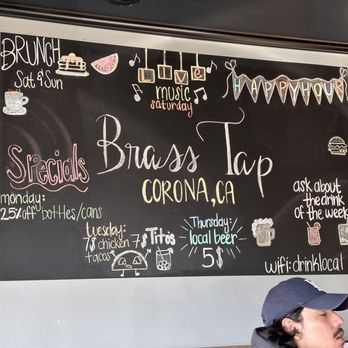 BRUNCH
Sat & Sun
Live
music
saturday
HAPPY HOUR
Brass Tap
CORONA, CA
Specials
monday:
25% off bottles/cans
tuesday:
7$ chicken
tacos
7$ Titos
Thursday:
local beer
5$
ask about
the drink
of the week
wifi: drinklocal